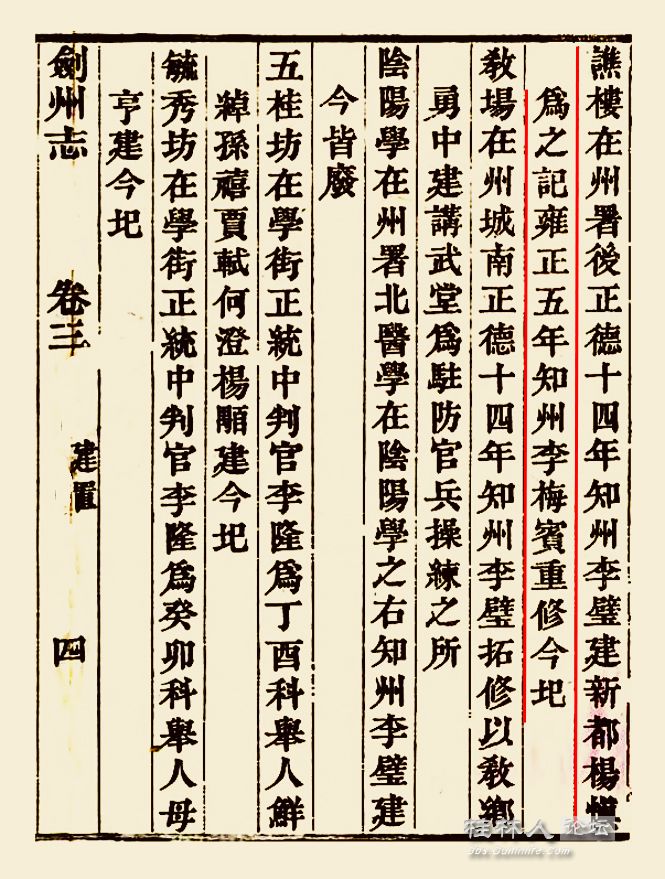 譙樓在州署後正德十四年知州李璧建新都楊慎
爲之記雍正五年知州李梅賓重修今圮
敎場在州城南正德十四年知州李璧拓修以敎鄉
勇中建講武堂爲駐防官兵操練之所
陰陽學在州署北醫學在陰陽學之右知州李璧建
今皆廢
五桂坊在學街正統中判官李隆爲丁酉科舉人鮮
孫禧賈軾何澄楊顒建今圮
毓秀坊在學街正統中判官李隆爲癸卯科舉人母
亨建今圮
劍州志
卷三
建置
四
桂林人论坛